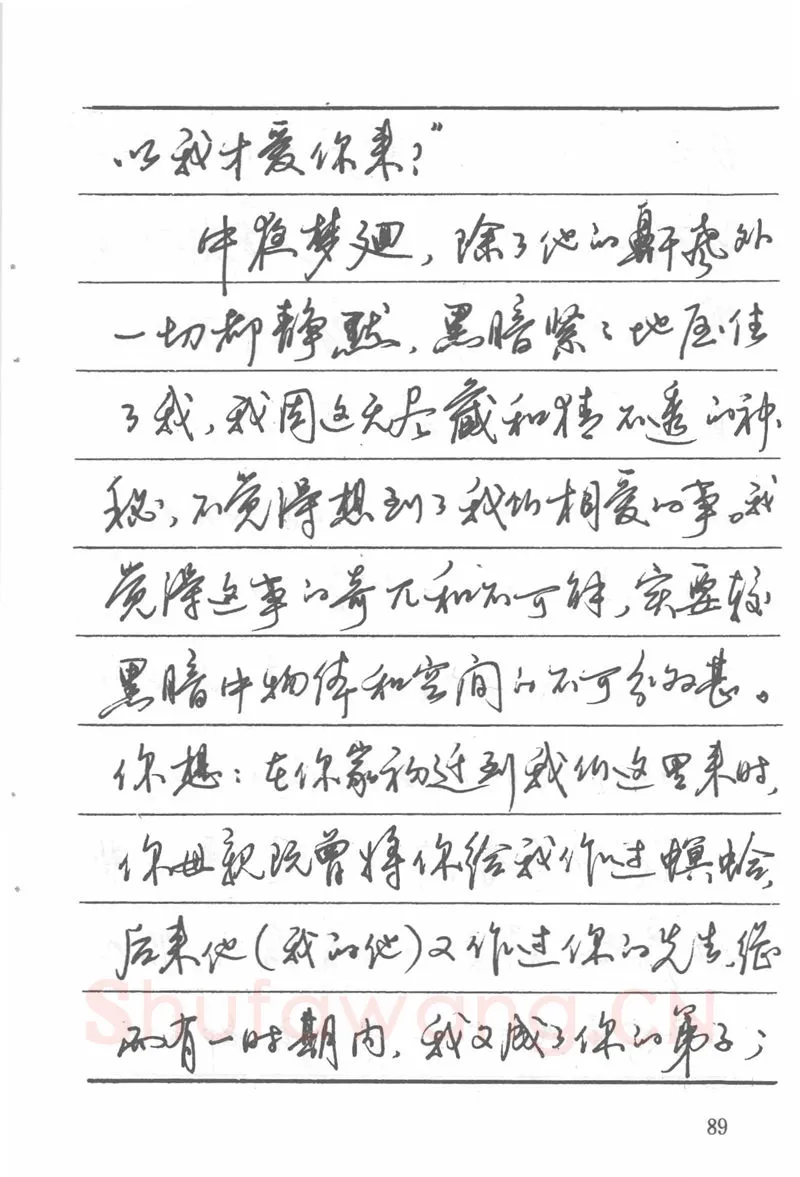 以我才爱你来？”
中夜梦迴，除了他的鼾声外
一切都静默，黑暗紧紧地压住
了我，我因这无尽藏和猜不透的神
秘，不觉得想到了我们相爱的事。我
觉得这事的奇兀和不可解，实要较
黑暗中物体和空间的不可分为甚。
你想：在你家初迁到我们这里来时，
你母亲既曾将你给我作过螟蛉，
后来他（我的他）又作过你的先生，继
而有一时期内，我又成了你的弟子；
Shufawang.CN
89